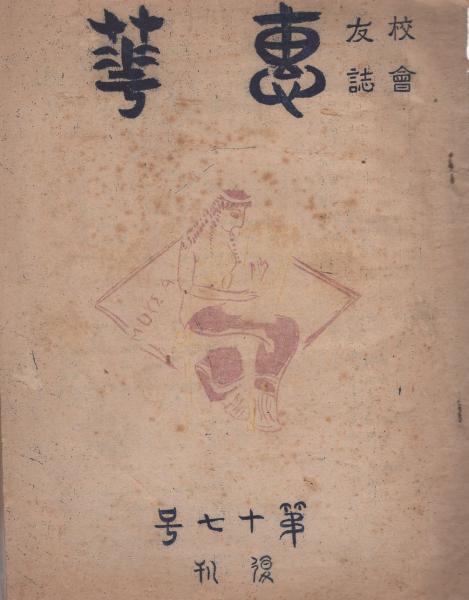 校友
會誌
惠華
第十七号
復刊